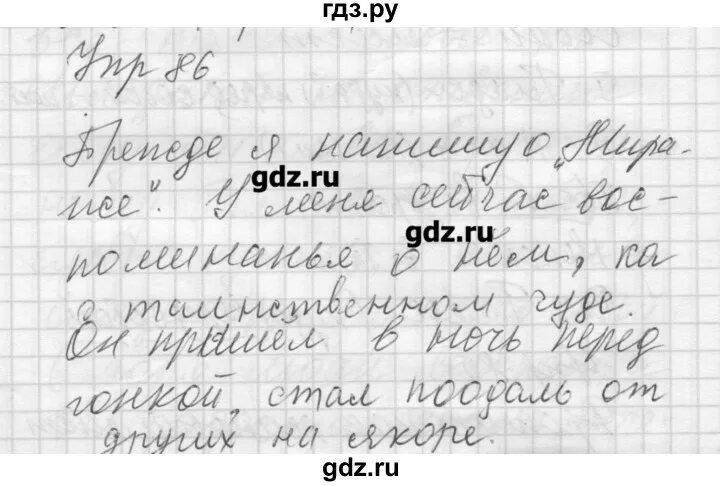 гдз.ру
Упр 86
Прежде я напишу о „Мира-
же". У меня сейчас вос-
gdz.ru
gdz.ru
поминанья о нём, ка
о таинственном чуде.
Он пришел в ночь перед
гонкой, стал поодаль от
других на якоре.
gdz.ru